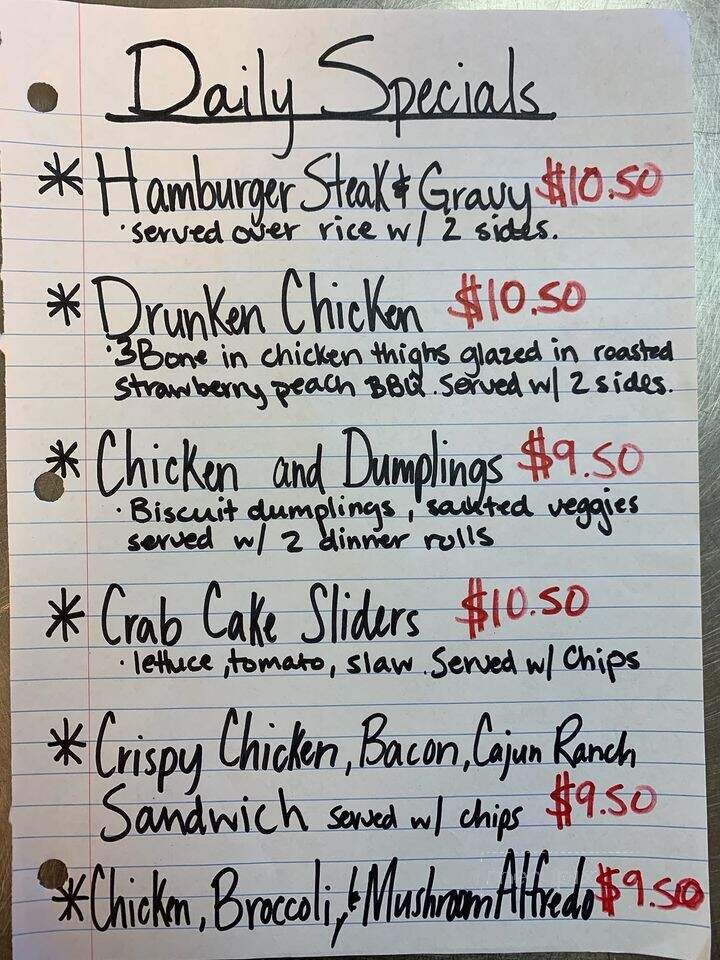 Daily Specials
* Hamburger Steak & Gravy $10.50
· served over rice w/ 2 sides.
* Drunken Chicken $10.50
· 3 Bone in chicken thighs glazed in roasted
strawberry peach BBQ. Served w/ 2 sides.
* Chicken and Dumplings $9.50
· Biscuit dumplings, sauteed veggies
served w/ 2 dinner rolls
* Crab Cake Sliders $10.50
· lettuce, tomato, slaw. Served w/ Chips
* Crispy Chicken, Bacon, Cajun Ranch
Sandwich served w/ chips $9.50
* Chicken, Broccoli, & Mushroom Alfredo $9.50